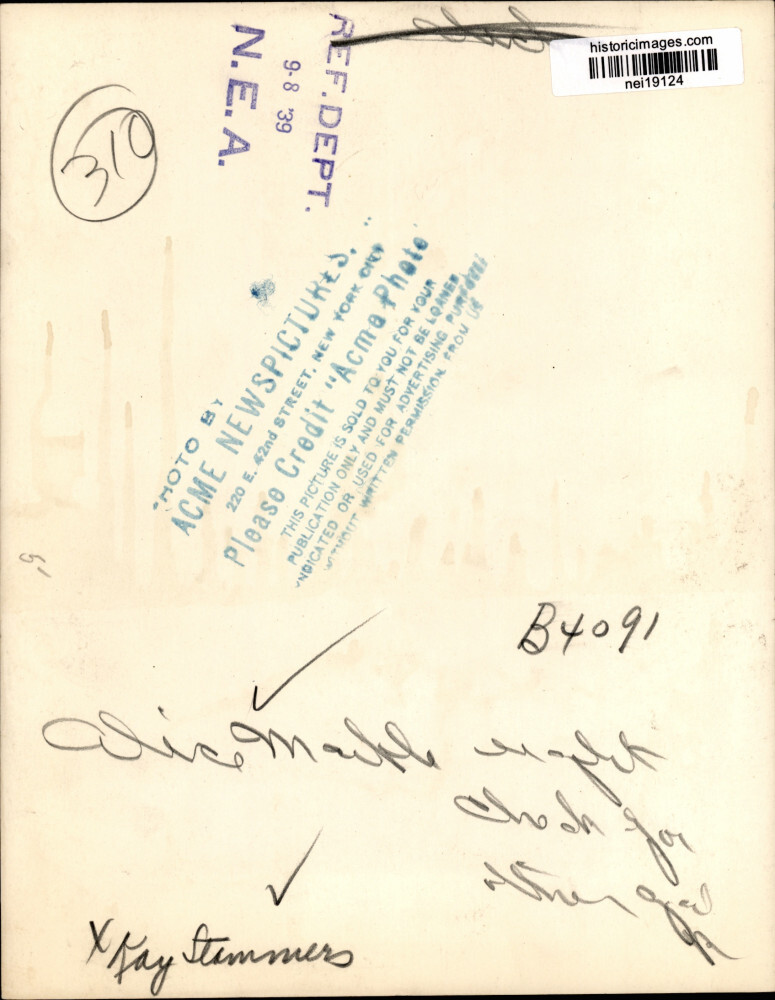 historicimages.com
nei19124
REF. DEPT.
9-8 '39
N.E.A.
310
PHOTO BY
ACME NEWSPICTURES,
220 E. 42nd STREET, NEW YORK CITY
Please Credit "Acme Photo"
THIS PICTURE IS SOLD TO YOU FOR YOUR
PUBLICATION ONLY AND MUST NOT BE LOANED
INDICATED OR USED FOR ADVERTISING PURPOSES
WITHOUT WRITTEN PERMISSION FROM US
B4091
Alice Marble right
Check for
other girl
x Kay Stammers